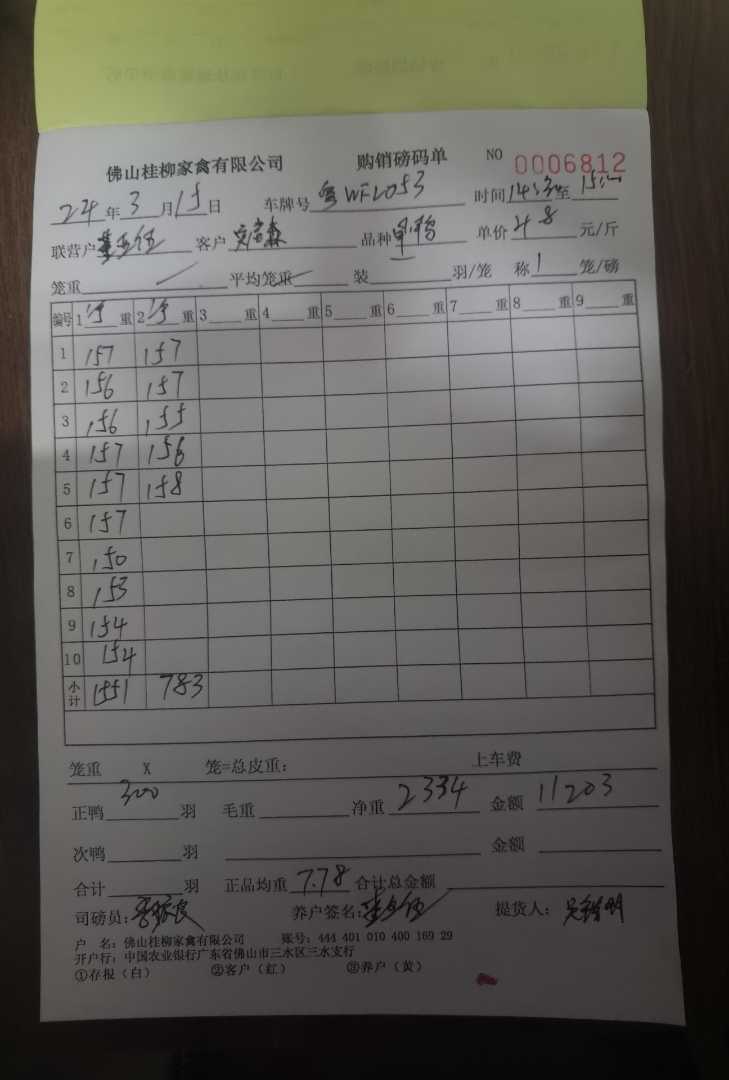 佛山桂柳家禽有限公司 购销磅码单 NO 0006812
24年3月15日 车牌号 粤WF2053 时间14:30至15:00
联营户 客户 品种 单价4.8元/斤
笼重 平均笼重 装 羽/笼 称1笼/磅
编号 1净重 2净重 3 重 4 重 5 重 6 重 7 重 8 重 9 重
1 157 157
2 156 157
3 156 155
4 157 156
5 157 158
6 157
7 150
8 153
9 154
10 154
小计 1551 783
笼重 X 笼=总皮重: 上车费
正鸭300羽 毛重 净重2334 金额11203
次鸭 羽 金额
合计 羽 正品均重7.78 合计总金额
司磅员: 养户签名: 提货人:
户 名:佛山桂柳家禽有限公司 账号:444 401 010 400 169 29
开户行:中国农业银行广东省佛山市三水区三水支行
①存根(白) ②客户(红) ③养户(黄)